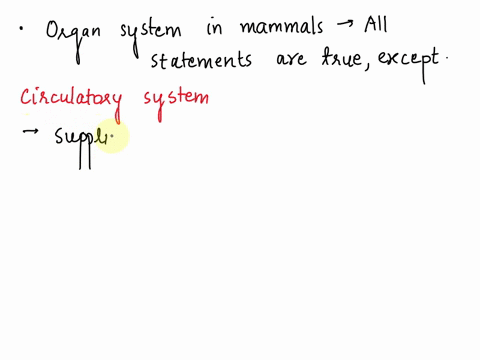 • Organ system in mammals → All
statements are true, except.
Circulatory system
→ Suppli